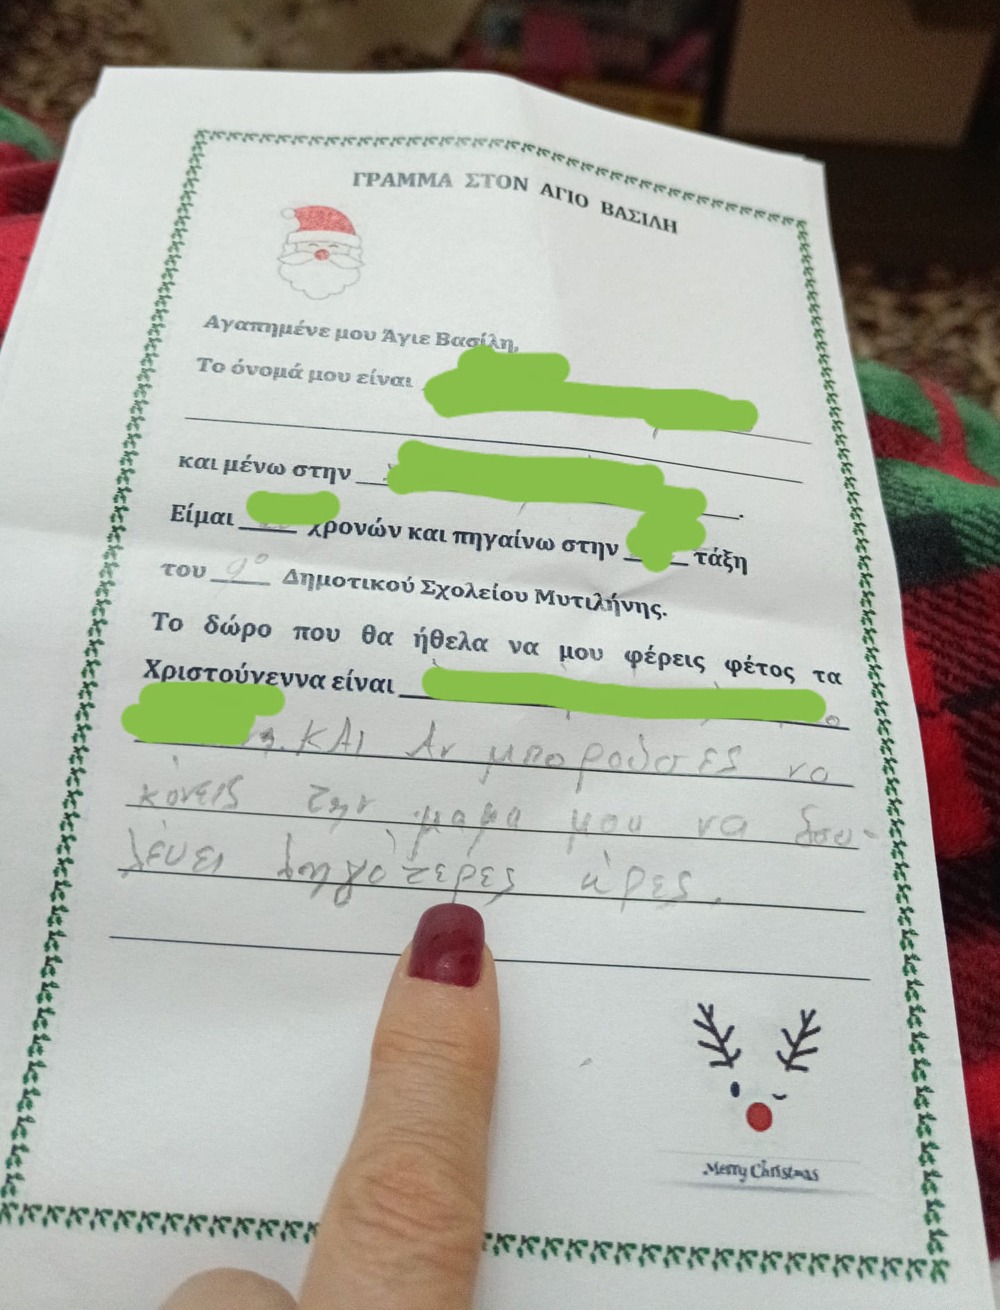 ΓΡΑΜΜΑ ΣΤΟΝ ΑΓΙΟ ΒΑΣΙΛΗ
Αγαπημένε μου Άγιε Βασίλη,
Το όνομά μου είναι
και μένω στην .
Είμαι χρονών και πηγαίνω στην τάξη
του 9º Δημοτικού Σχολείου Μυτιλήνης.
Το δώρο που θα ήθελα να μου φέρεις φέτος τα
Χριστούγεννα είναι
ΚΑΙ Αν μπορούσες να
κάνεις την μαμα μου να δου-
λευει λιγότερες ώρες.
Merry Christmas